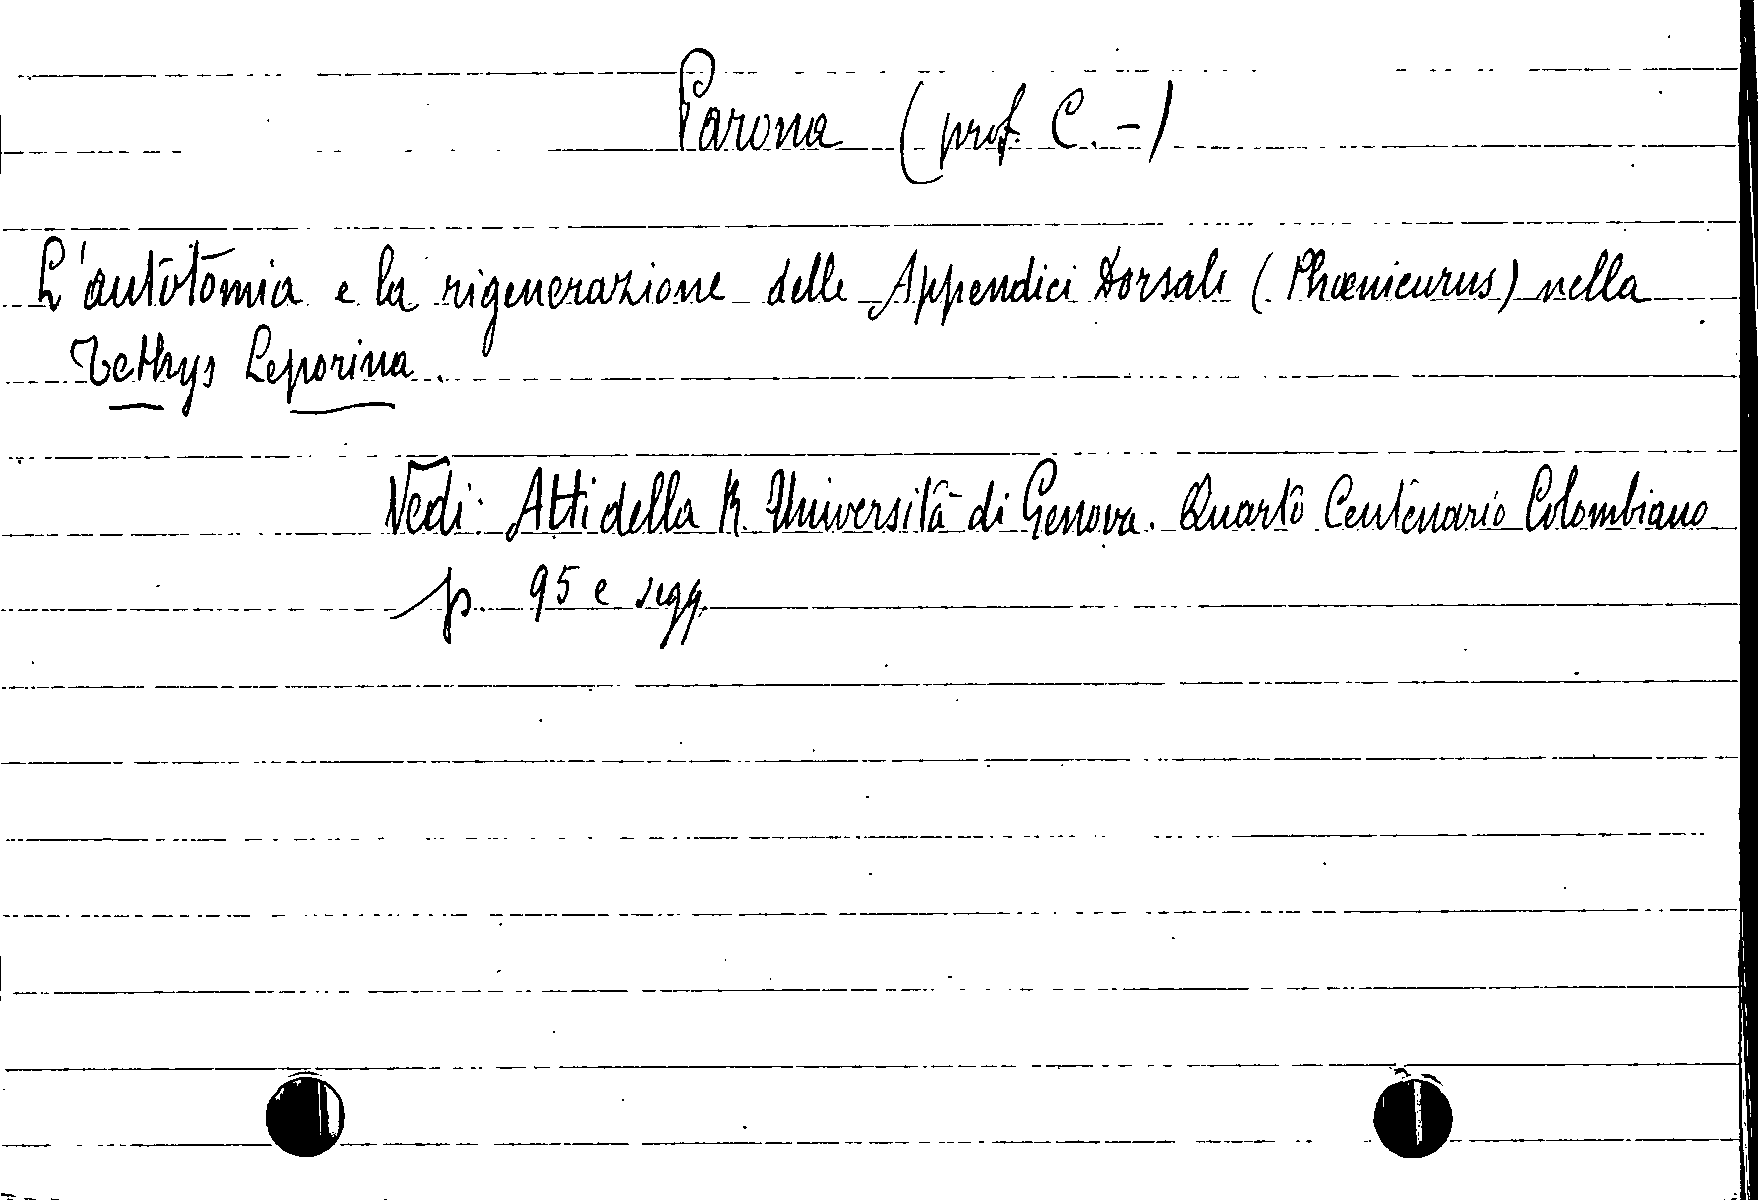 Parona (prof. C.-)
L'autotomia e la rigenerazione delle Appendici Dorsali (Phœnicurus) nella
Tethys Leporina.
Vedi: Atti della R. Università di Genova. Quarto Centenario Colombiano
p. 95 e segg.